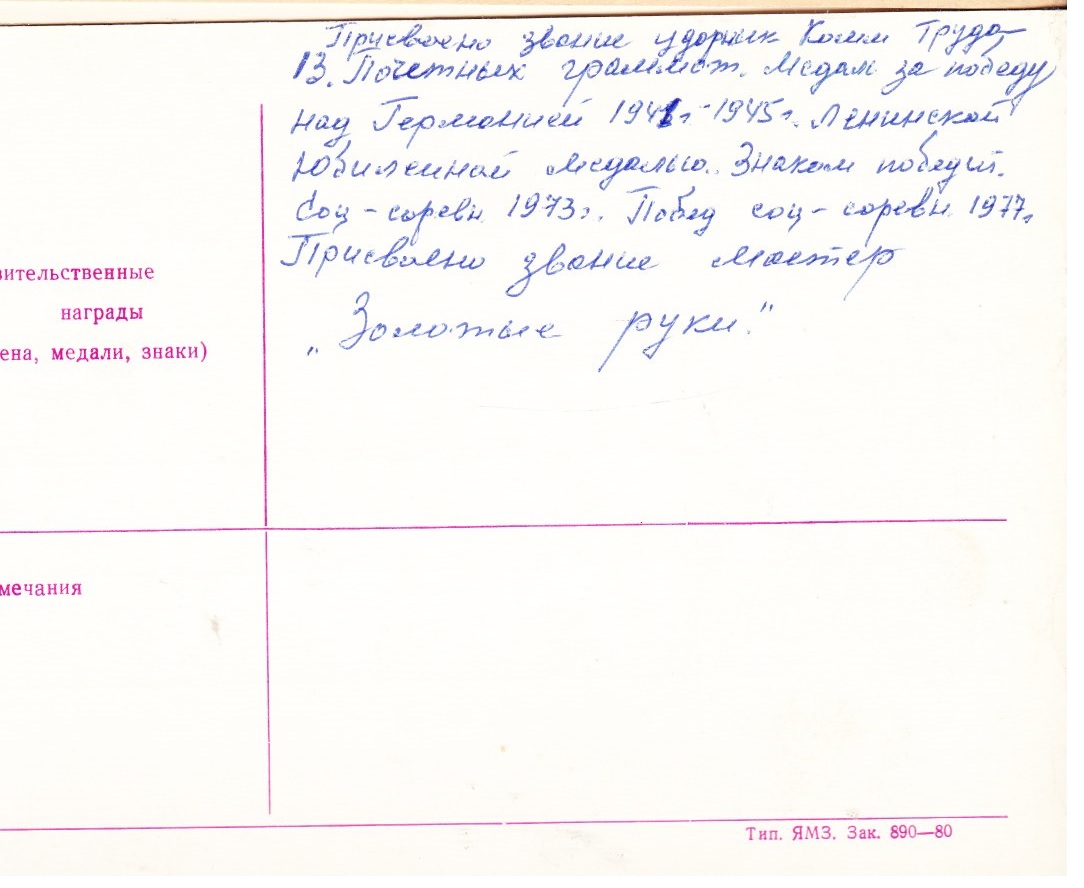 Присвоено звание ударник Комм Труда
13. Почетных граммот. Медаль за победу
над Германией 1941г-1945г. Ленинской
Юбилейной медалью. Знаком победит.
Соц-соревн 1973г. Побед соц-соревн. 1977г.
Присвоено звание мастер
„Золотые руки."
вительственные
награды
ена, медали, знаки)
мечания
Тип. ЯМЗ. Зак. 890—80